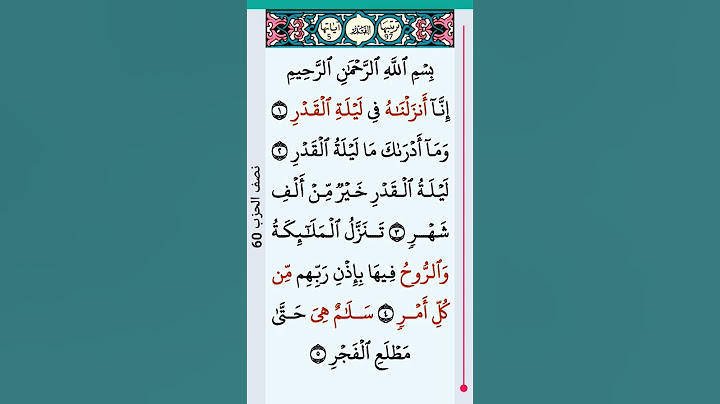 ترتيبها 97 القدر آياتها 5
بِسْمِ ٱللَّهِ ٱلرَّحْمَٰنِ ٱلرَّحِيمِ
إِنَّآ أَنزَلْنَٰهُ فِى لَيْلَةِ ٱلْقَدْرِ ١
وَمَآ أَدْرَىٰكَ مَا لَيْلَةُ ٱلْقَدْرِ ٢
لَيْلَةُ ٱلْقَدْرِ خَيْرٌ مِّنْ أَلْفِ
شَهْرٍ ٣ تَنَزَّلُ ٱلْمَلَٰٓئِكَةُ
وَٱلرُّوحُ فِيهَا بِإِذْنِ رَبِّهِم مِّن
كُلِّ أَمْرٍ ٤ سَلَٰمٌ هِىَ حَتَّىٰ
مَطْلَعِ ٱلْفَجْرِ ٥
نصف الحزب 60